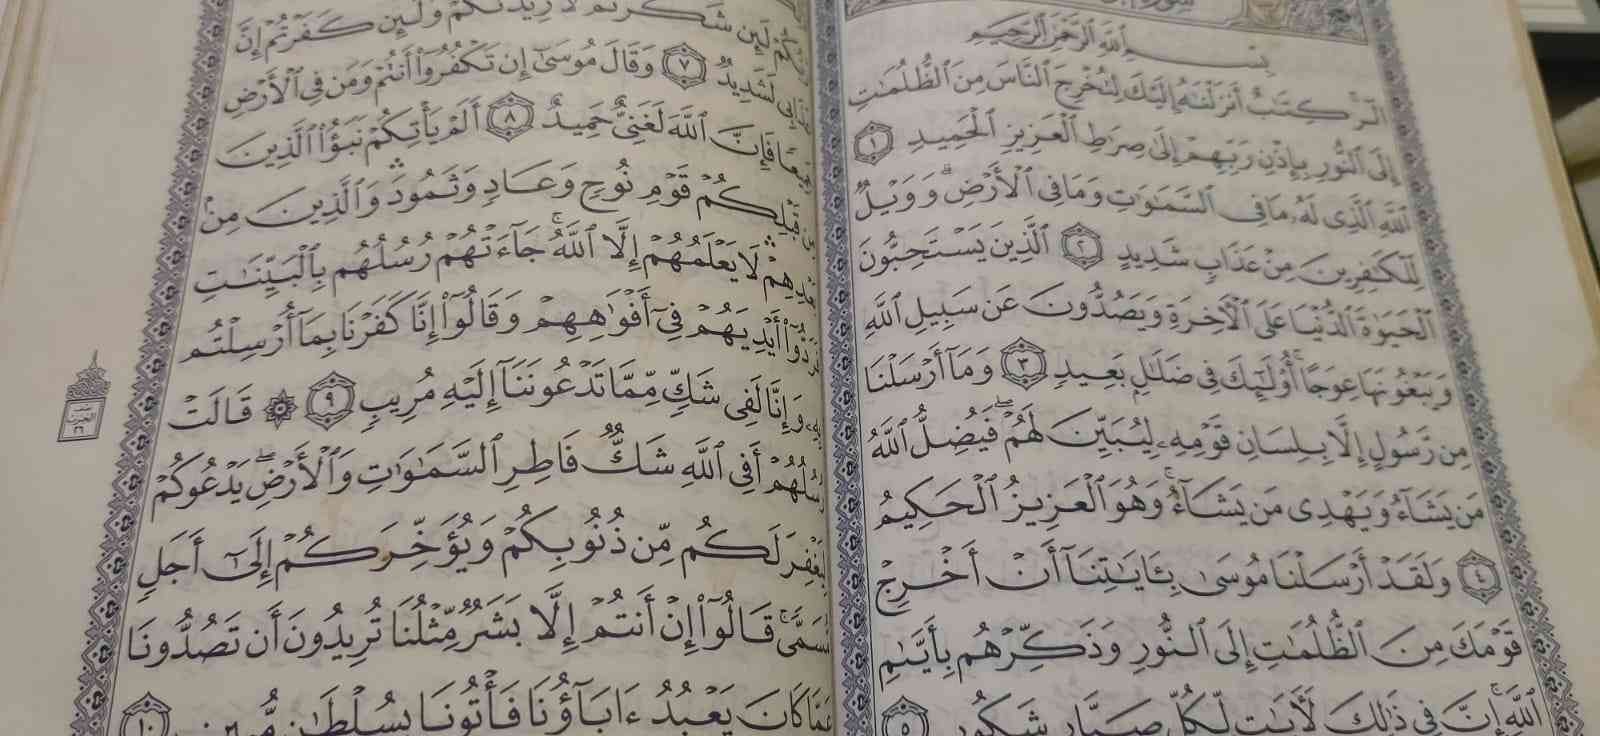 بِسْمِ ٱللَّهِ ٱلرَّحْمَٰنِ ٱلرَّحِيمِ
الٓر ۚ كِتَٰبٌ أَنزَلْنَٰهُ إِلَيْكَ لِتُخْرِجَ ٱلنَّاسَ مِنَ ٱلظُّلُمَٰتِ
إِلَى ٱلنُّورِ بِإِذْنِ رَبِّهِمْ إِلَىٰ صِرَٰطِ ٱلْعَزِيزِ ٱلْحَمِيدِ ١
ٱللَّهِ ٱلَّذِى لَهُۥ مَا فِى ٱلسَّمَٰوَٰتِ وَمَا فِى ٱلْأَرْضِ ۗ وَوَيْلٌ
لِّلْكَٰفِرِينَ مِنْ عَذَابٍ شَدِيدٍ ٢ ٱلَّذِينَ يَسْتَحِبُّونَ
ٱلْحَيَوٰةَ ٱلدُّنْيَا عَلَى ٱلْءَاخِرَةِ وَيَصُدُّونَ عَن سَبِيلِ ٱللَّهِ
وَيَبْغُونَهَا عِوَجًا ۚ أُو۟لَٰٓئِكَ فِى ضَلَٰلٍۭ بَعِيدٍ ٣ وَمَآ أَرْسَلْنَا
مِن رَّسُولٍ إِلَّا بِلِسَانِ قَوْمِهِۦ لِيُبَيِّنَ لَهُمْ ۖ فَيُضِلُّ ٱللَّهُ
مَن يَشَآءُ وَيَهْدِى مَن يَشَآءُ ۚ وَهُوَ ٱلْعَزِيزُ ٱلْحَكِيمُ
٤ وَلَقَدْ أَرْسَلْنَا مُوسَىٰ بِـَٔايَٰتِنَآ أَنْ أَخْرِجْ
قَوْمَكَ مِنَ ٱلظُّلُمَٰتِ إِلَى ٱلنُّورِ وَذَكِّرْهُم بِأَيَّىٰمِ
ٱللَّهِ ۚ إِنَّ فِى ذَٰلِكَ لَءَايَٰتٍ لِّكُلِّ صَبَّارٍ شَكُورٍ ٥
لَئِن شَكَرْتُمْ لَأَزِيدَنَّكُمْ ۖ وَلَئِن كَفَرْتُمْ إِنَّ
لَشَدِيدٌ ٧ وَقَالَ مُوسَىٰٓ إِن تَكْفُرُوٓا۟ أَنتُمْ وَمَن فِى ٱلْأَرْضِ
فَإِنَّ ٱللَّهَ لَغَنِىٌّ حَمِيدٌ ٨ أَلَمْ يَأْتِكُمْ نَبَؤُا۟ ٱلَّذِينَ
قَبْلِكُمْ قَوْمِ نُوحٍ وَعَادٍ وَثَمُودَ ۛ وَٱلَّذِينَ مِنۢ
بَعْدِهِمْ ۛ لَا يَعْلَمُهُمْ إِلَّا ٱللَّهُ ۚ جَآءَتْهُمْ رُسُلُهُم بِٱلْبَيِّنَٰتِ
فَرَدُّوٓا۟ أَيْدِيَهُمْ فِىٓ أَفْوَٰهِهِمْ وَقَالُوٓا۟ إِنَّا كَفَرْنَا بِمَآ أُرْسِلْتُم
بِهِۦ وَإِنَّا لَفِى شَكٍّ مِّمَّا تَدْعُونَنَآ إِلَيْهِ مُرِيبٍ ٩ ۞ قَالَتْ
رُسُلُهُمْ أَفِى ٱللَّهِ شَكٌّ فَاطِرِ ٱلسَّمَٰوَٰتِ وَٱلْأَرْضِ ۖ يَدْعُوكُمْ
لِيَغْفِرَ لَكُم مِّن ذُنُوبِكُمْ وَيُؤَخِّرَكُمْ إِلَىٰٓ أَجَلٍ
مُّسَمًّى ۚ قَالُوٓا۟ إِنْ أَنتُمْ إِلَّا بَشَرٌ مِّثْلُنَا تُرِيدُونَ أَن تَصُدُّونَا
عَمَّا كَانَ يَعْبُدُ ءَابَآؤُنَا فَأْتُونَا بِسُلْطَٰنٍ مُّبِينٍ ١٠
نصف
الحزب
٢٦